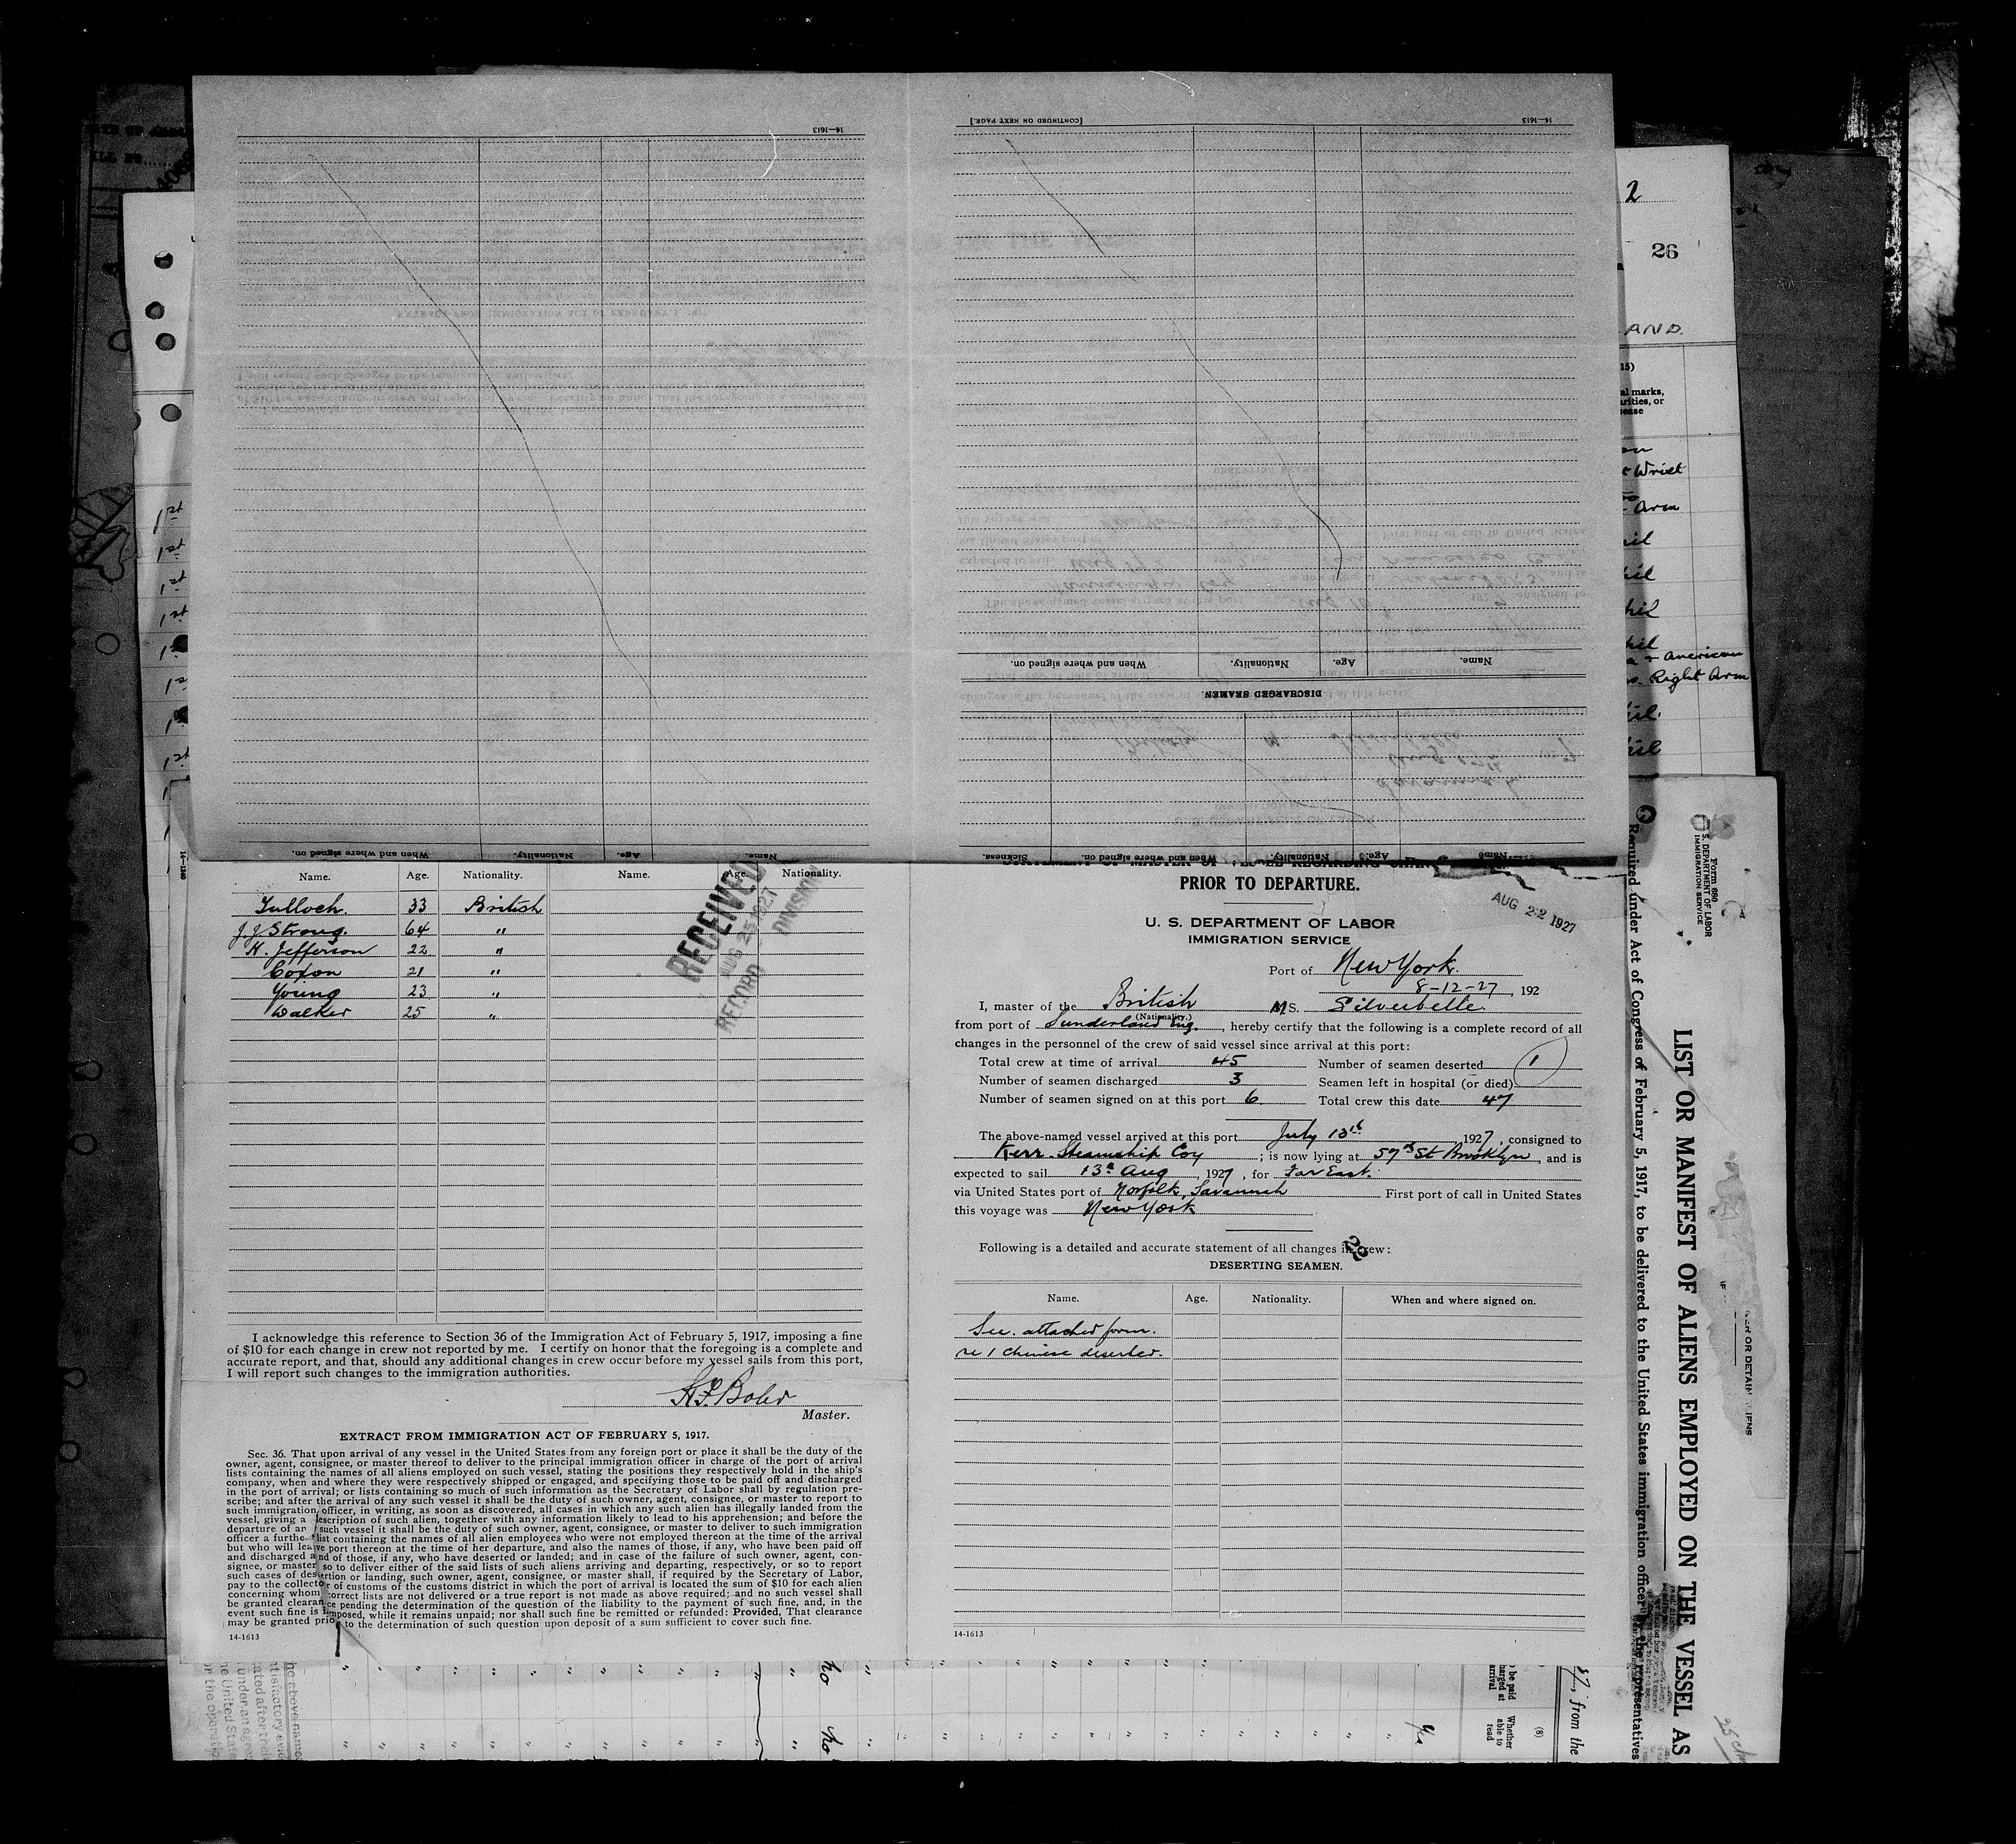 14-1613
[CONTINUED ON NEXT PAGE.]
14-1613
When and where signed on.
Nationality.
Age.
Name.
DISCHARGED SEAMEN.
When and where signed on.
Nationality.
Age.
Name.
Sickness.
When and where signed on.
Nationality.
Age.
Name
2
26
AND.
15)
al marks,
arities, or
ease
Wrist
Arm
American
Right Arm
Name.
Age.
Nationality.
Name.
Age.
Nationality.
Tulloch.
33
British
J. J. Strong.
64
"
H. Jefferson
22
"
Coxon
21
"
Young
23
"
Walker
25
"
RECEIVED
AUG 25 1927
RECORD DIVISION
I acknowledge this reference to Section 36 of the Immigration Act of February 5, 1917, imposing a fine
of $10 for each change in crew not reported by me. I certify on honor that the foregoing is a complete and
accurate report, and that, should any additional changes in crew occur before my vessel sails from this port,
I will report such changes to the immigration authorities.
Master.
EXTRACT FROM IMMIGRATION ACT OF FEBRUARY 5, 1917.
Sec. 36. That upon arrival of any vessel in the United States from any foreign port or place it shall be the duty of the
owner, agent, consignee, or master thereof to deliver to the principal immigration officer in charge of the port of arrival
lists containing the names of all aliens employed on such vessel, stating the positions they respectively hold in the ship's
company, when and where they were respectively shipped or engaged, and specifying those to be paid off and discharged
in the port of arrival; or lists containing so much of such information as the Secretary of Labor shall by regulation pre-
scribe; and after the arrival of any such vessel it shall be the duty of such owner, agent, consignee, or master to report to
such immigration officer, in writing, as soon as discovered, all cases in which any such alien has illegally landed from the
vessel, giving a description of such alien, together with any information likely to lead to his apprehension; and before the
departure of an such vessel it shall be the duty of such owner, agent, consignee, or master to deliver to such immigration
officer a furthe list containing the names of all alien employees who were not employed thereon at the time of the arrival
but who will leave port thereon at the time of her departure, and also the names of those, if any, who have been paid off
and discharged and of those, if any, who have deserted or landed; and in case of the failure of such owner, agent, con-
signee, or master so to deliver either of the said lists of such aliens arriving and departing, respectively, or so to report
such cases of desertion or landing, such owner, agent, consignee, or master shall, if required by the Secretary of Labor,
pay to the collector of customs of the customs district in which the port of arrival is located the sum of $10 for each alien
concerning whom correct lists are not delivered or a true report is not made as above required; and no such vessel shall
be granted clearance pending the determination of the question of the liability to the payment of such fine, and, in the
event such fine is imposed, while it remains unpaid; nor shall such fine be remitted or refunded: Provided, That clearance
may be granted prio to the determination of such question upon deposit of a sum sufficient to cover such fine.
14-1613
PRIOR TO DEPARTURE.
AUG 22 1927
U. S. DEPARTMENT OF LABOR
IMMIGRATION SERVICE
Port of New York.
8-12-27, 192
I, master of the British M S. Silverbelle
(Nationality.)
from port of Sunderland Eng., hereby certify that the following is a complete record of all
changes in the personnel of the crew of said vessel since arrival at this port:
Total crew at time of arrival 45 Number of seamen deserted 1
Number of seamen discharged 3 Seamen left in hospital (or died)
Number of seamen signed on at this port 6. Total crew this date 47
The above-named vessel arrived at this port July 13th 1927, consigned to
Kerr Steamship Coy; is now lying at 57th St Brooklyn, and is
expected to sail 13th Aug, 1927, for Far East.
via United States port of Norfolk, Savannah First port of call in United States
this voyage was New York
Following is a detailed and accurate statement of all changes in crew:
22
DESERTING SEAMEN.
Name.
Age.
Nationality.
When and where signed on.
See attached form.
re 1 Chinese deserter.
14-1613
Form 680
U. S. DEPARTMENT OF LABOR
IMMIGRATION SERVICE
LIST OR MANIFEST OF ALIENS EMPLOYED ON THE VESSEL AS
Required under Act of Congress of February 5, 1917, to be delivered to the United States immigration officer by the representatives
, from the
(8)
Whether
able to
read
be paid
harged at
arrival
Yes
no
no